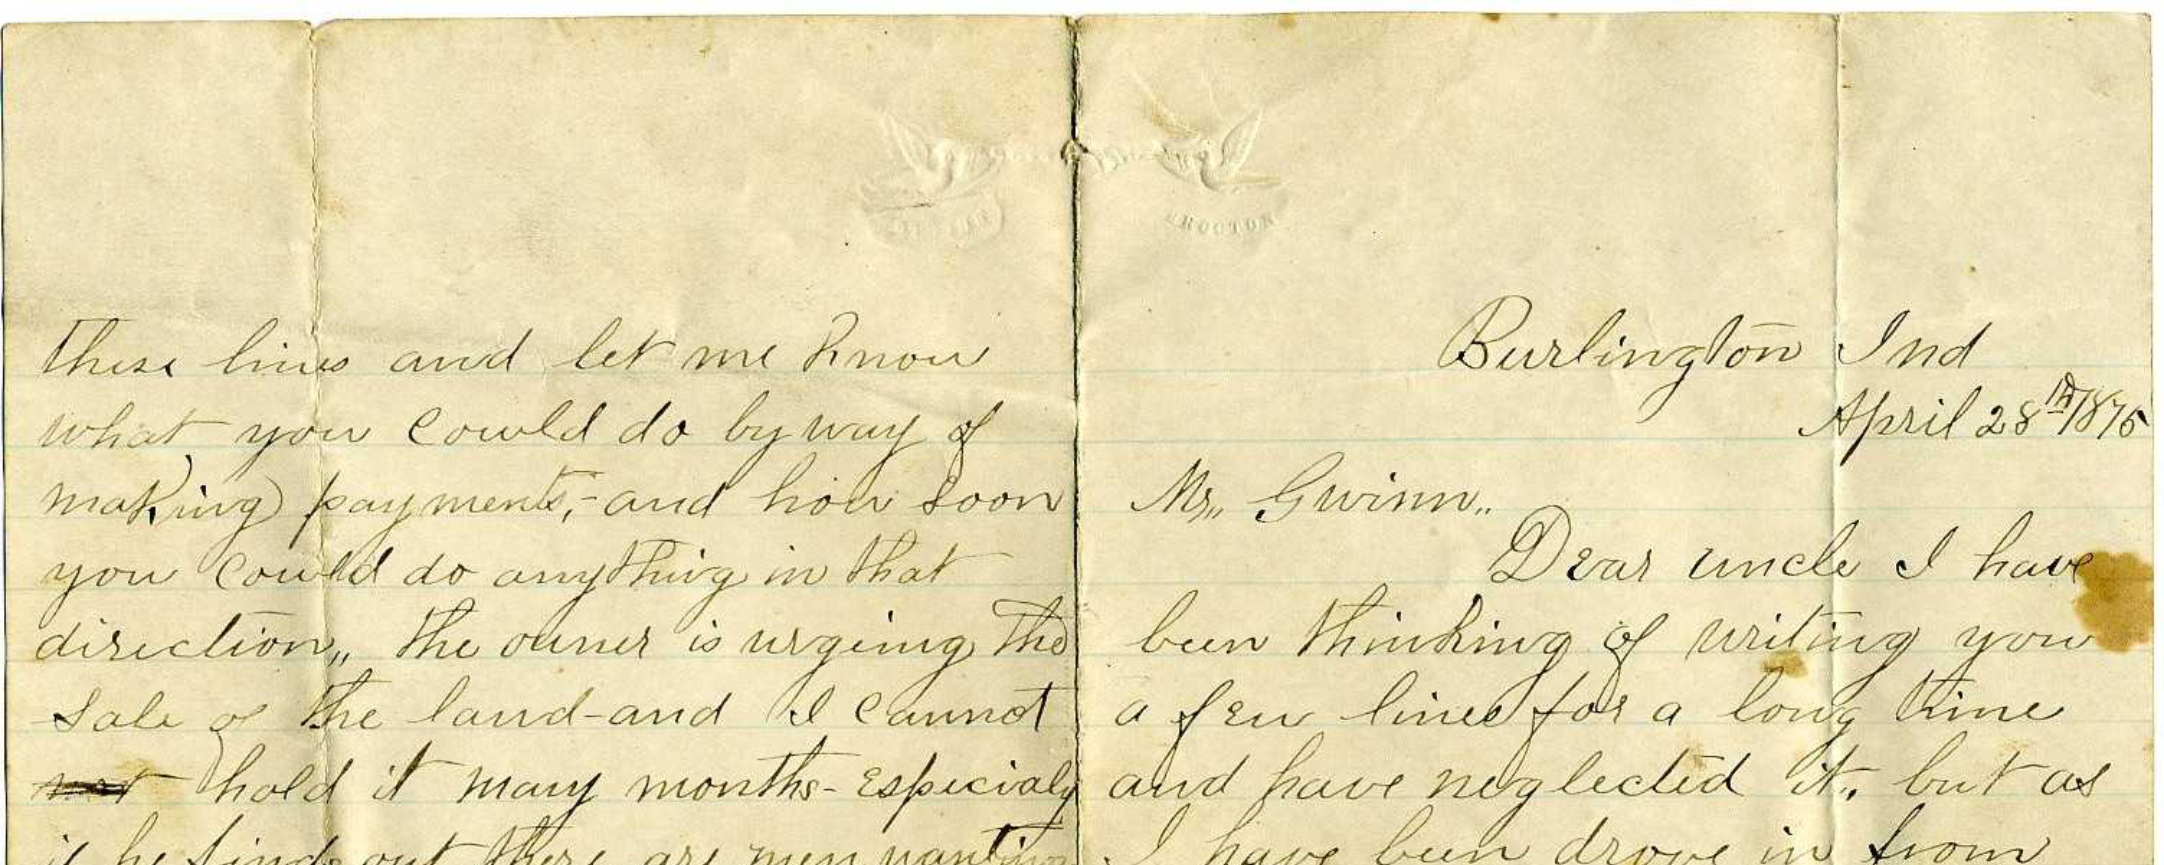 BROCTON
these lines and let me know
what you could do by way of
making payments,- and how soon
you could do anything in that
direction,, the owner is urgeing the
sale of the land-and I cannot
not hold it many months- Especialy
if he finds out there are men wanting
Burlington Ind
April 28th 1876
Mr,, Gwinn,,
Dear uncle I have
been thinking of writing you
a few lines for a long time
and have neglected it,, but as
I have been drove in from